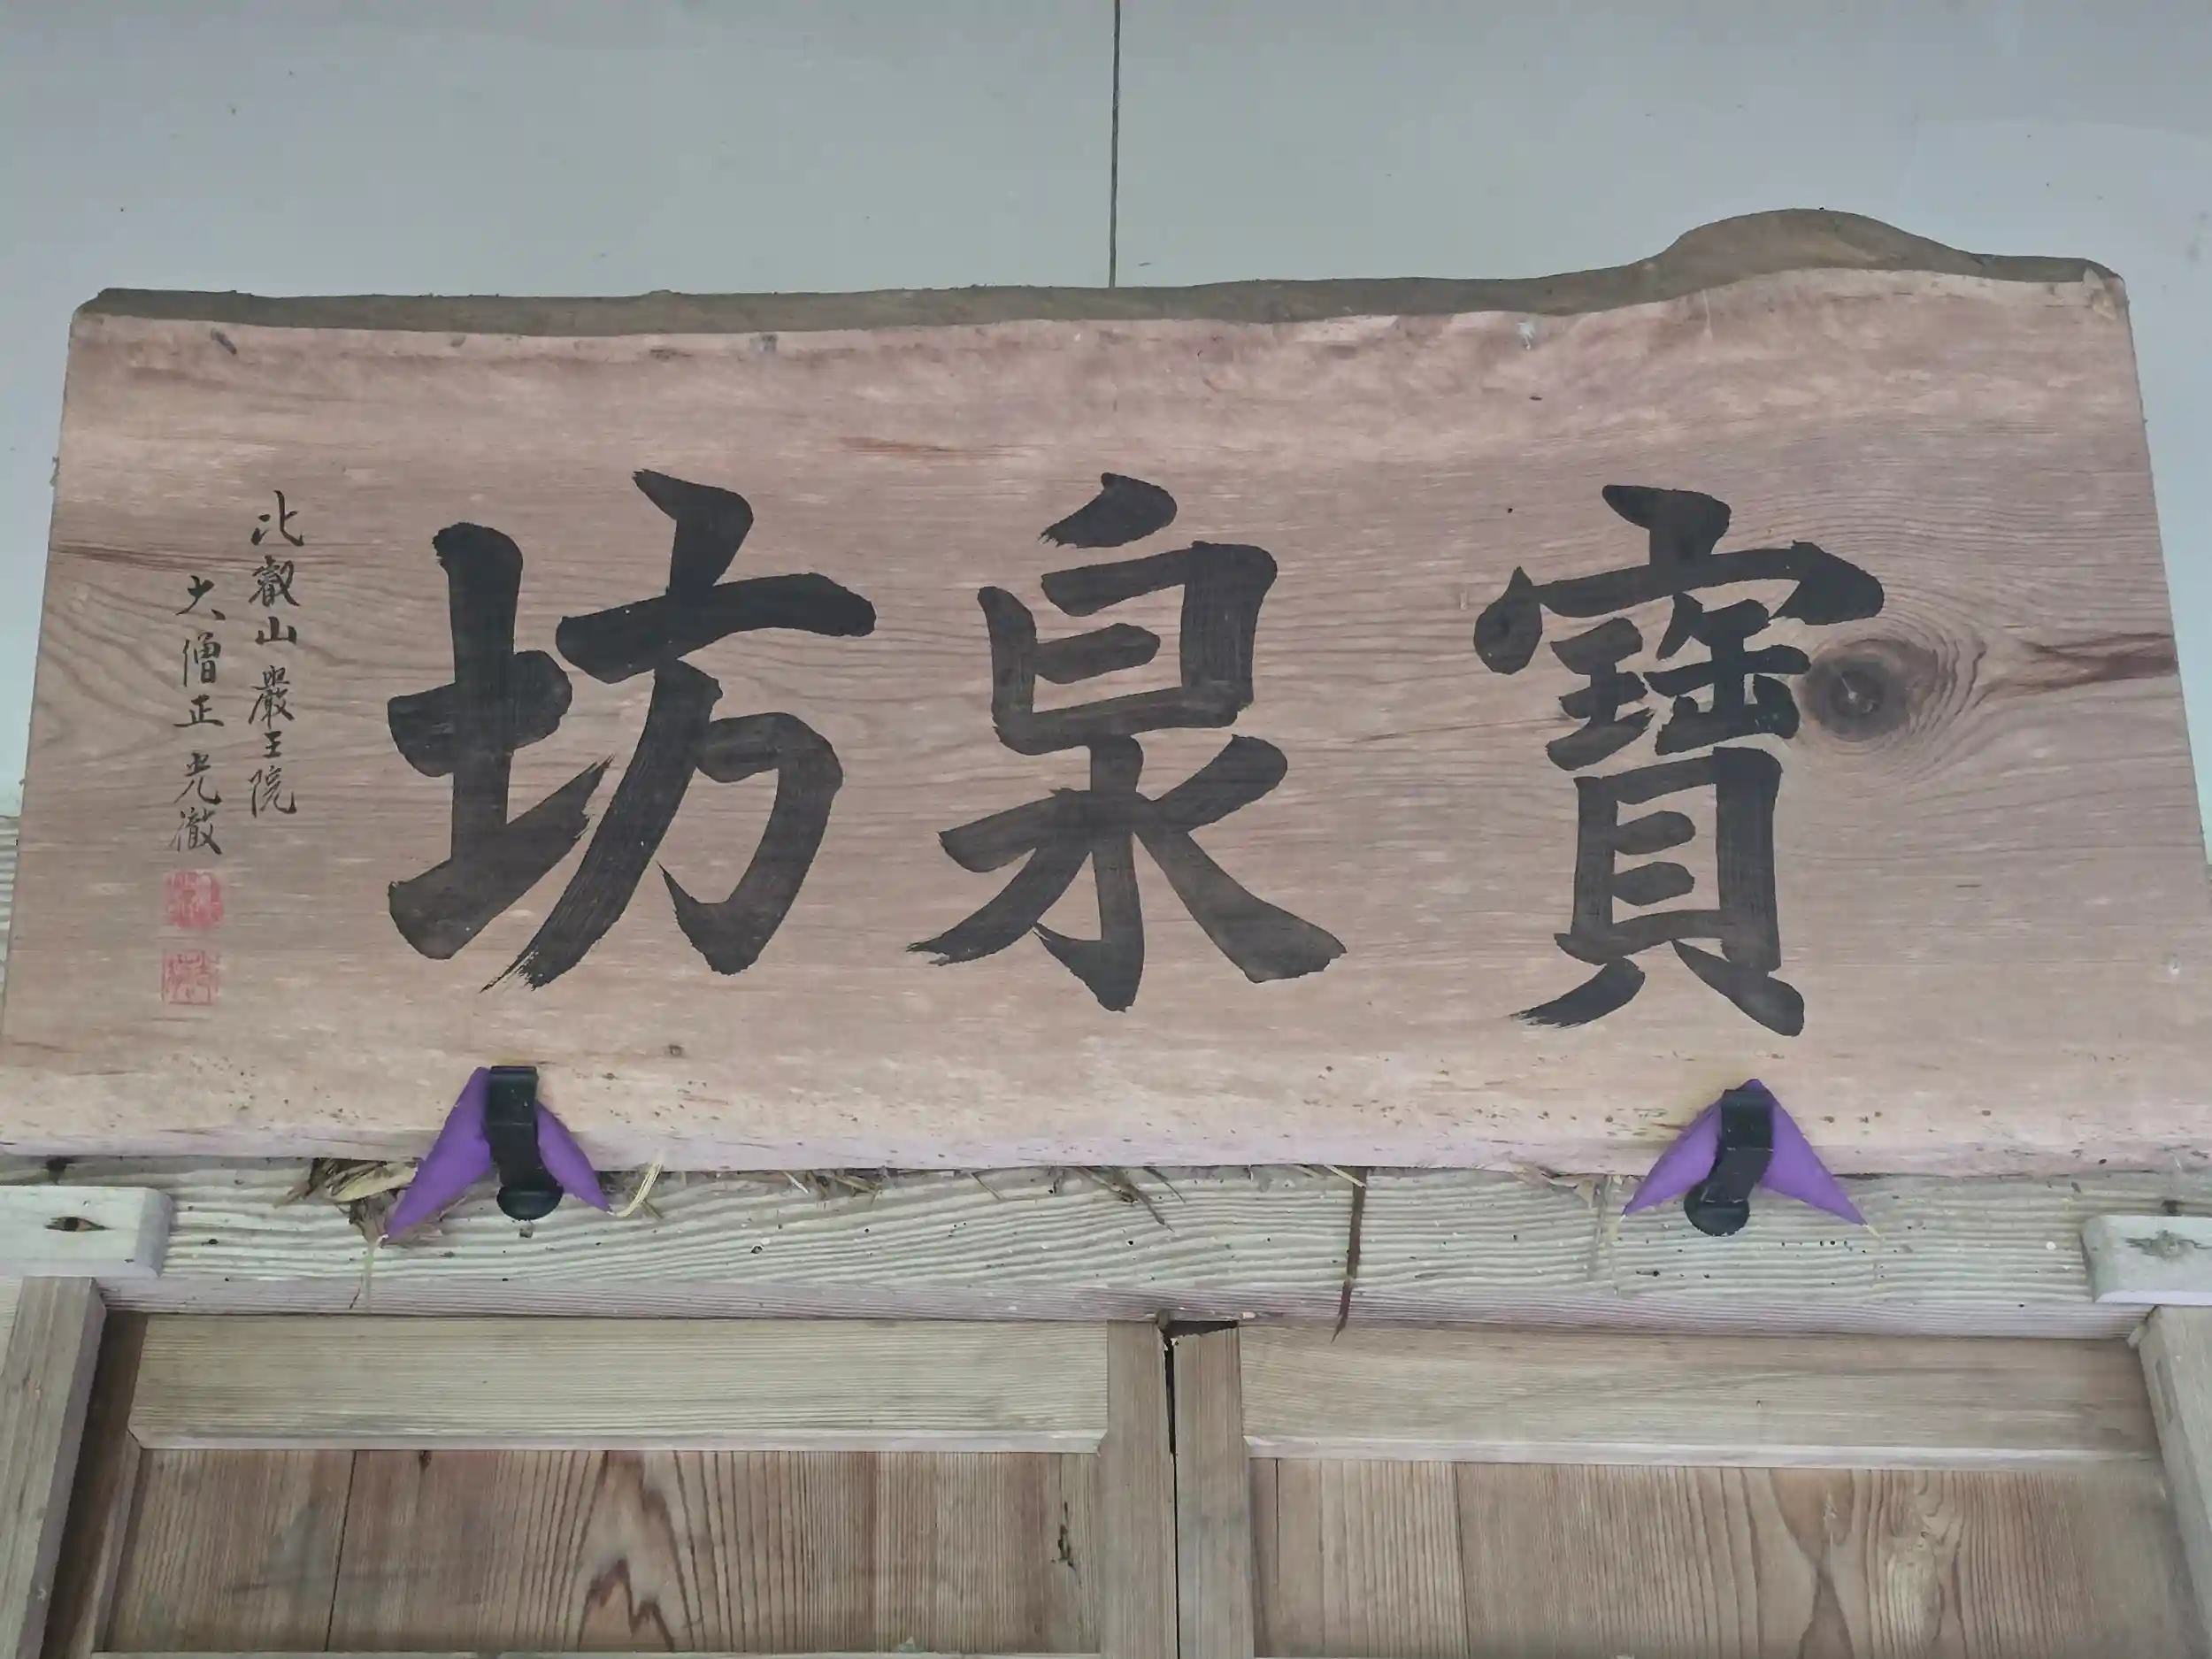 寶泉坊
比叡山 巖王院
大僧正 光徹